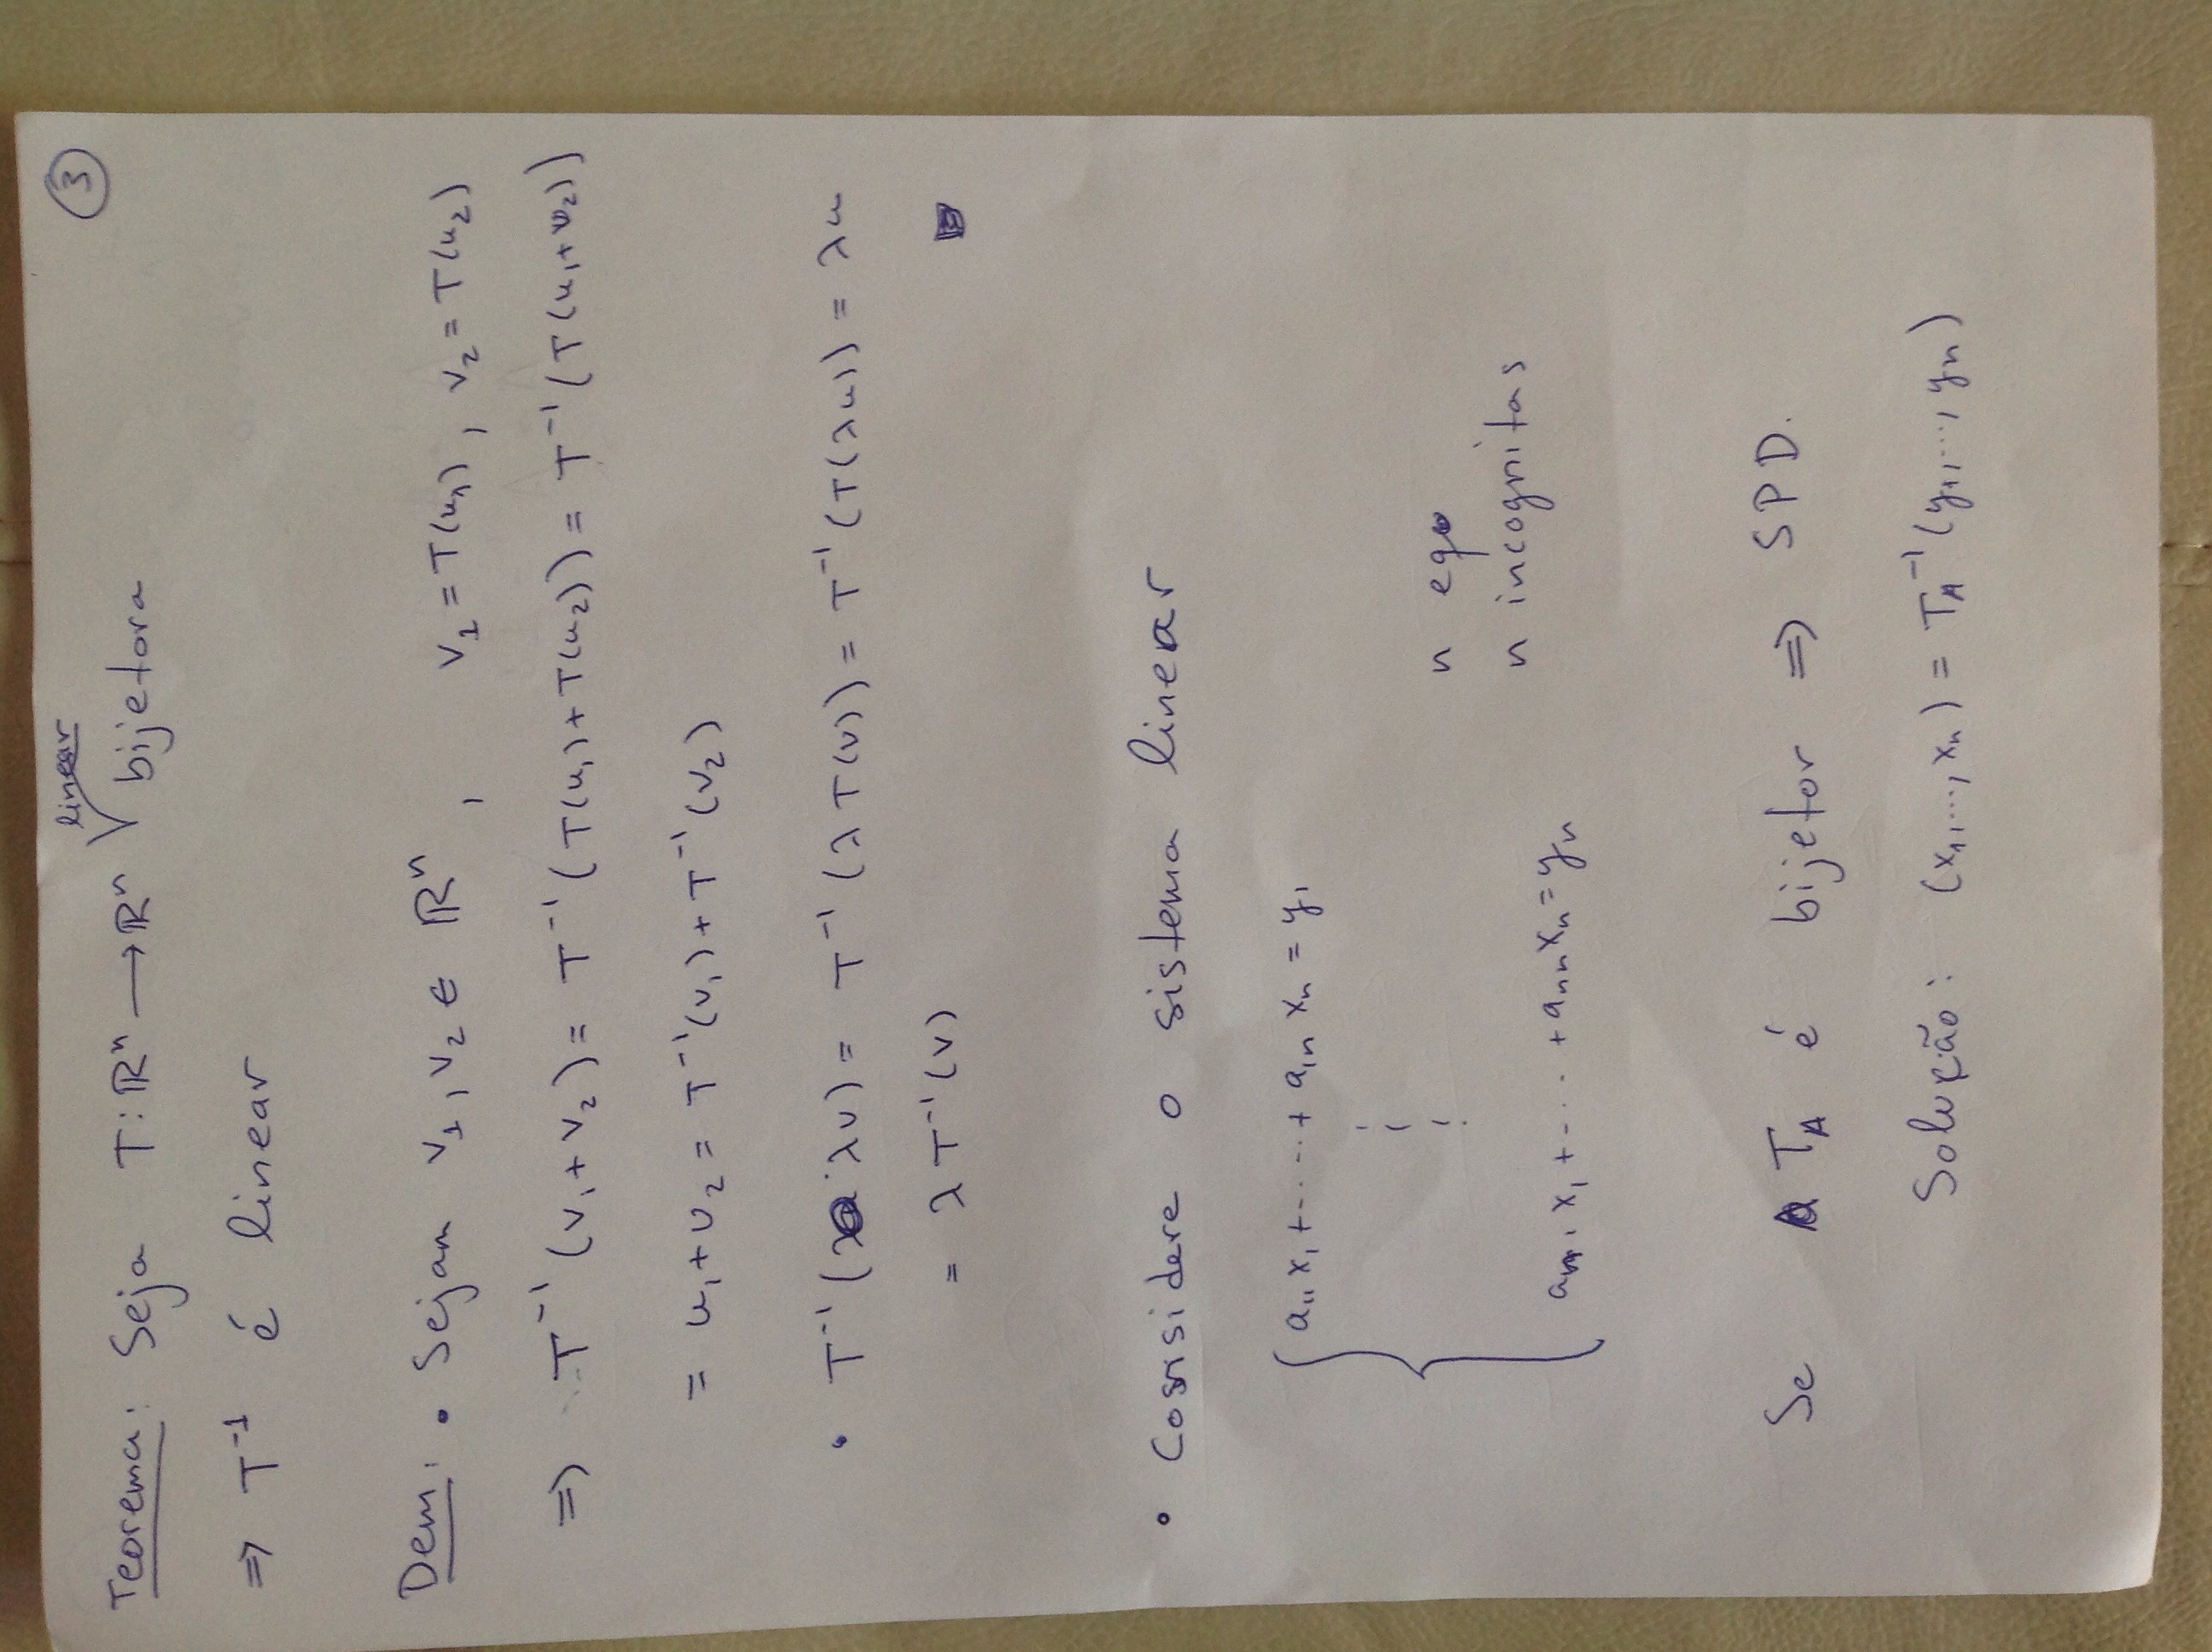 ③
linear
Teorema: Seja T: ℝⁿ → ℝⁿ √ bijetora
⇒ T⁻¹ é linear
Dem: • Sejam v₁, v₂ ∈ ℝⁿ, v₁ = T(u₁), v₂ = T(u₂)
⇒ T⁻¹(v₁+v₂) = T⁻¹(T(u₁)+T(u₂)) = T⁻¹(T(u₁+u₂))
= u₁+u₂ = T⁻¹(v₁)+T⁻¹(v₂)
• T⁻¹(λv) = T⁻¹(λT(u)) = T⁻¹(T(λu)) = λu
= λT⁻¹(v)
• Cosnsidere o sistema linear
a₁₁x₁+·····+a₁ₙxₙ = y₁
⋮ n eqo
n incognitas
aₙ₁x₁+····+aₙₙxₙ = yₙ
Se T_A é bijetor ⇒ SPD.
Solução: (x₁,...,xₙ) = T_A⁻¹(y₁,...,yₙ)